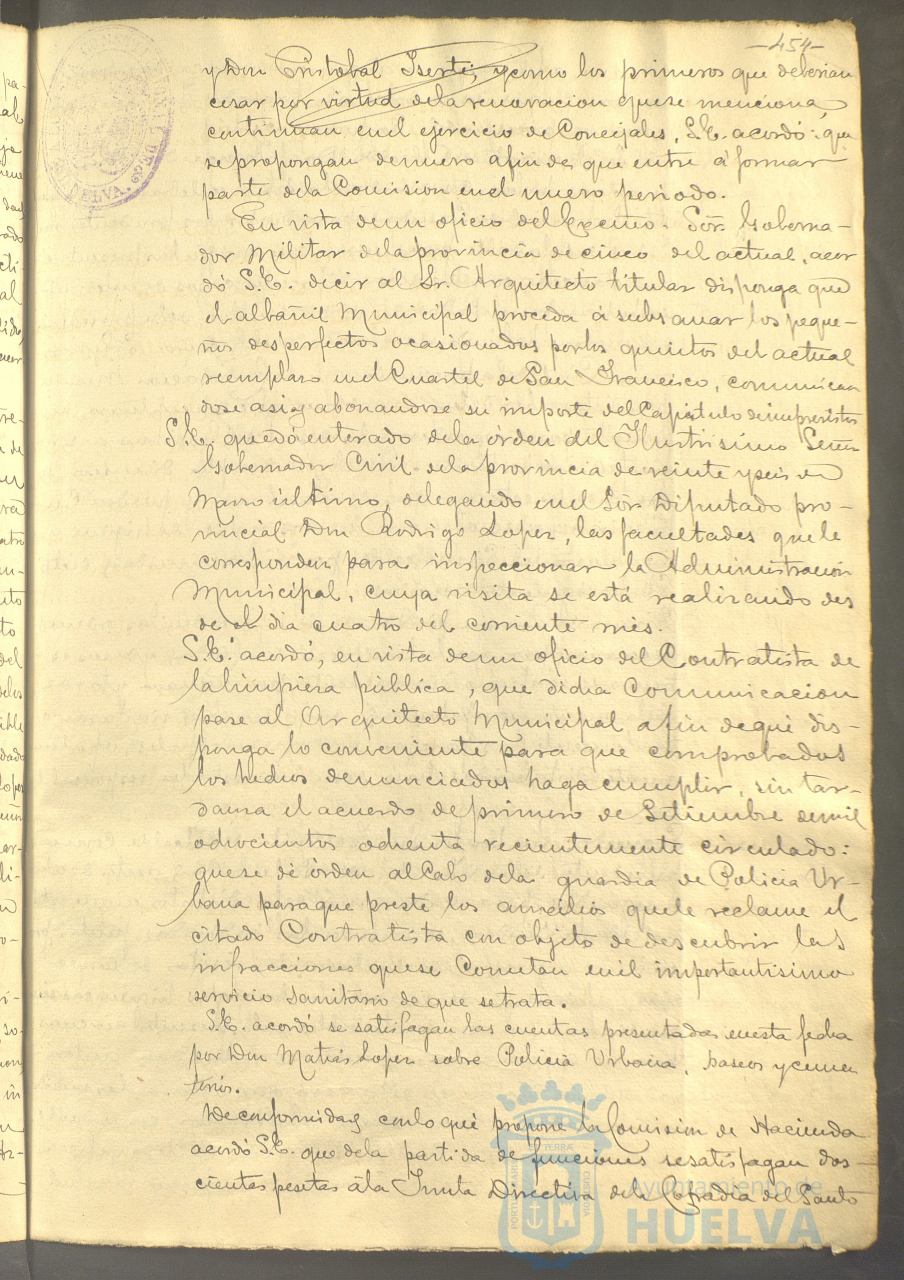 -454-
y Don Cristobal Iserte, y como los primeros que deberian
cesar por virtud de la renovacion que se menciona
continuan en el ejercicio de Concejales, S.E. acordó: que
se propongan de nuevo a fin de que entre á formar
parte de la Comision en el nuevo periodo.
En vista de un oficio del Excmo. Sôr. Goberna-
dor Militar de la provincia de cinco del actual, acor
dó S.E. decir al Sr. Arquitecto titular disponga que
el albañil Municipal proceda á subsanar los peque-
ños desperfectos ocasionados por los quintos del actual
reemplazo en el Cuartel de San Francisco, comunican
dose asi y abonandose su importe del Capitulo de imprevistos
S.E. quedó enterado de la órden del Ilustrisimo Señor
Gobernador Civil de la provincia de veinte y seis de
Marzo último, delegando en el Sôr Diputado pro-
vincial Don Rodrigo Lopez, las facultades que le
corresponden para inspeccionar la Administracion
Municipal, cuya visita se está realizando des
de el dia cuatro del corriente mes.
S.E. acordó, en vista de un oficio del Contratista de
la limpieza pública, que dicha comunicacion
pase al Arquitecto Municipal a fin de que dis-
ponga lo conveniente para que comprobados
los hechos denunciados haga cumplir, sin tar-
danza el acuerdo de primero de Setiembre de mil
ochocientos ochenta recientemente circulado:
que se dé órden al Cabo de la guardia de Policia Ur-
bana para que preste los auxilios que le reclame el
citado Contratista con objeto de descubrir las
infracciones que se cometan en el importantisimo
servicio sanitario de que se trata.
S.E. acordó se satisfagan las cuentas presentadas en esta fecha
por Don Matias Lopez sobre Policia Urbana, paseos y cemen
terios.
De conformidad con lo que propone la Comision de Hacienda
acordó S.E. que de la partida de funciones se satisfagan dos-
cientas pesetas á la Junta Directiva de la Cofradia del Santo
Ayuntamiento de
HUELVA